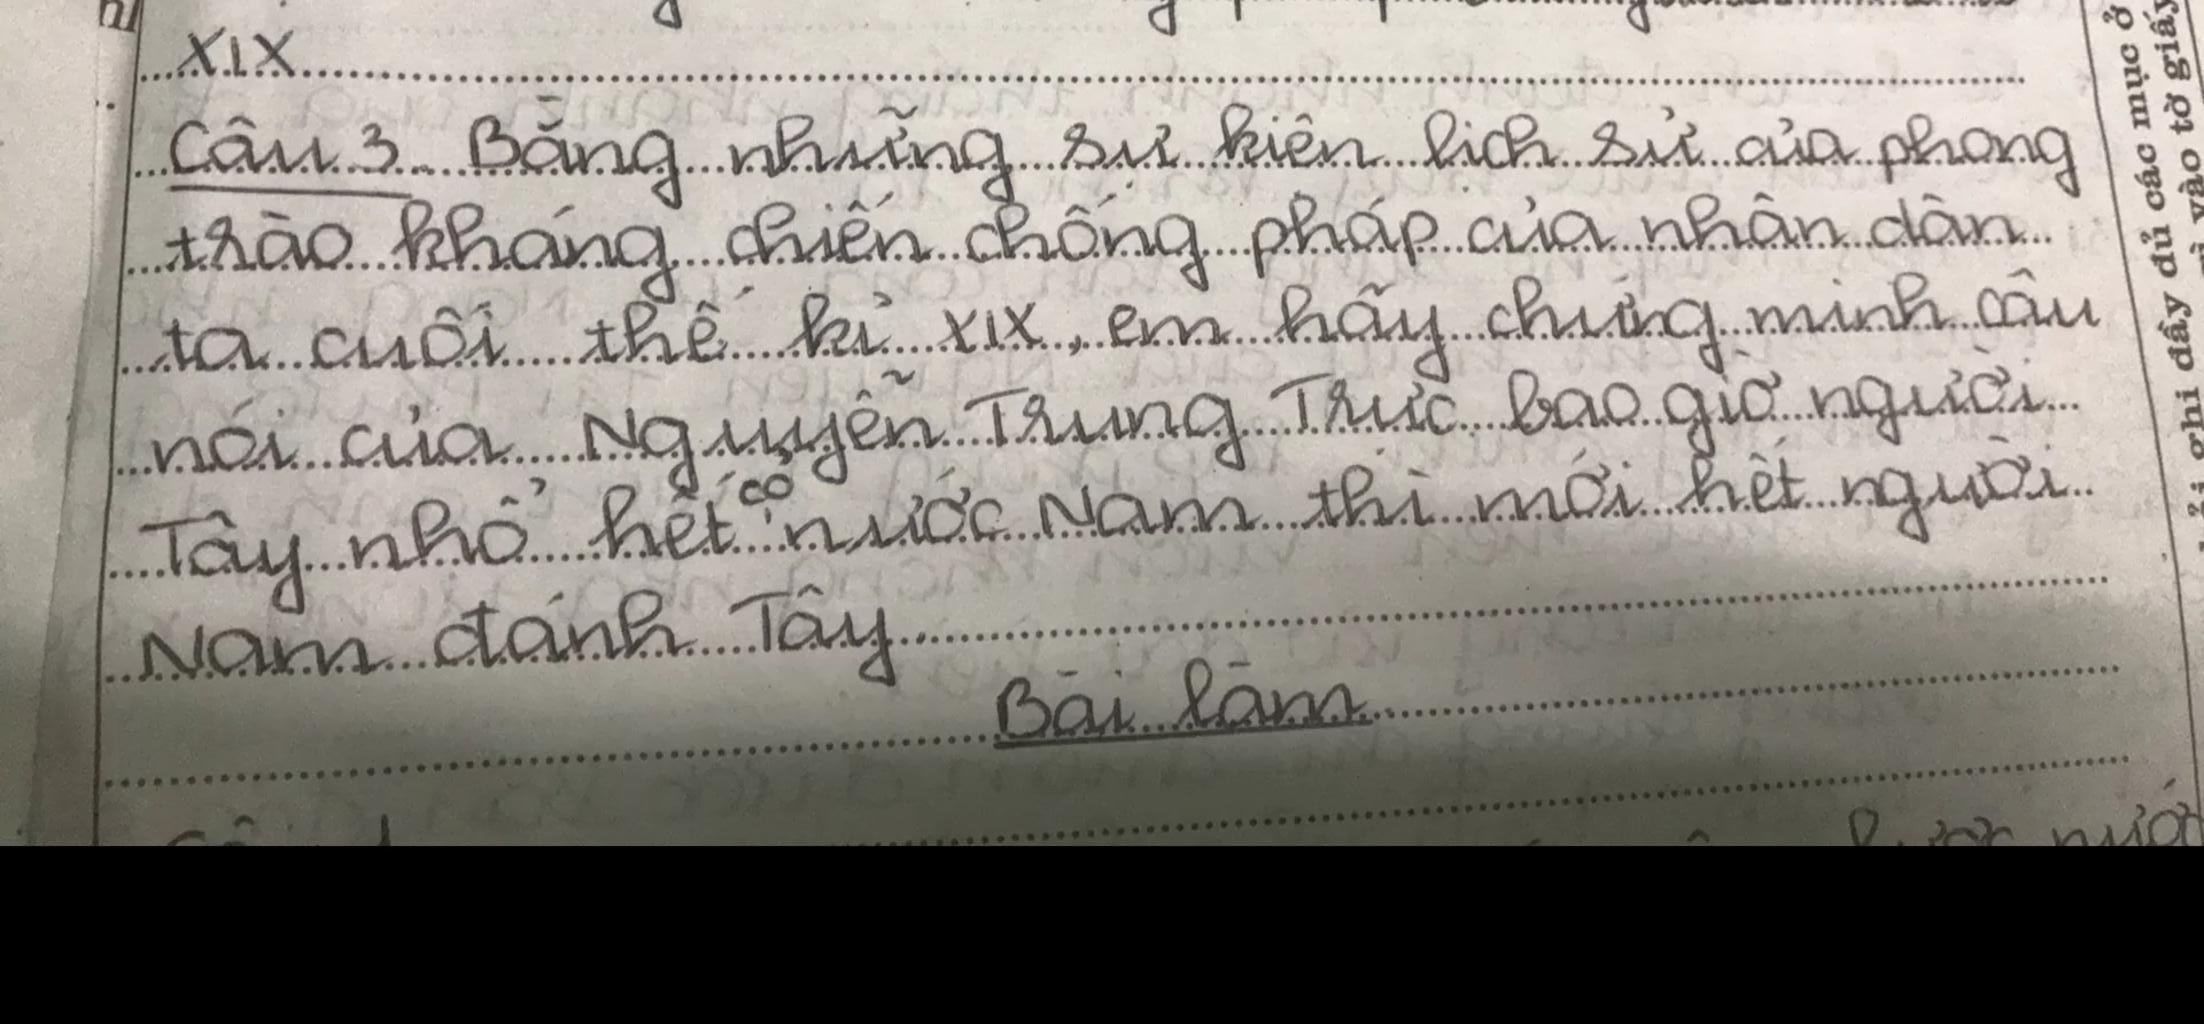 XIX
Câu 3 Bằng những sự kiện lịch sử của phong
trào kháng chiến chống pháp của nhân dân
ta cuối thế kỉ XIX, em hãy chứng minh câu
nói của Nguyễn Trung Trực bao giờ người
Tây nhổ hết cỏ nước Nam thì mới hết người
Nam đánh Tây
Bài làm
ghi đầy đủ các mục ở
vào tờ giấy